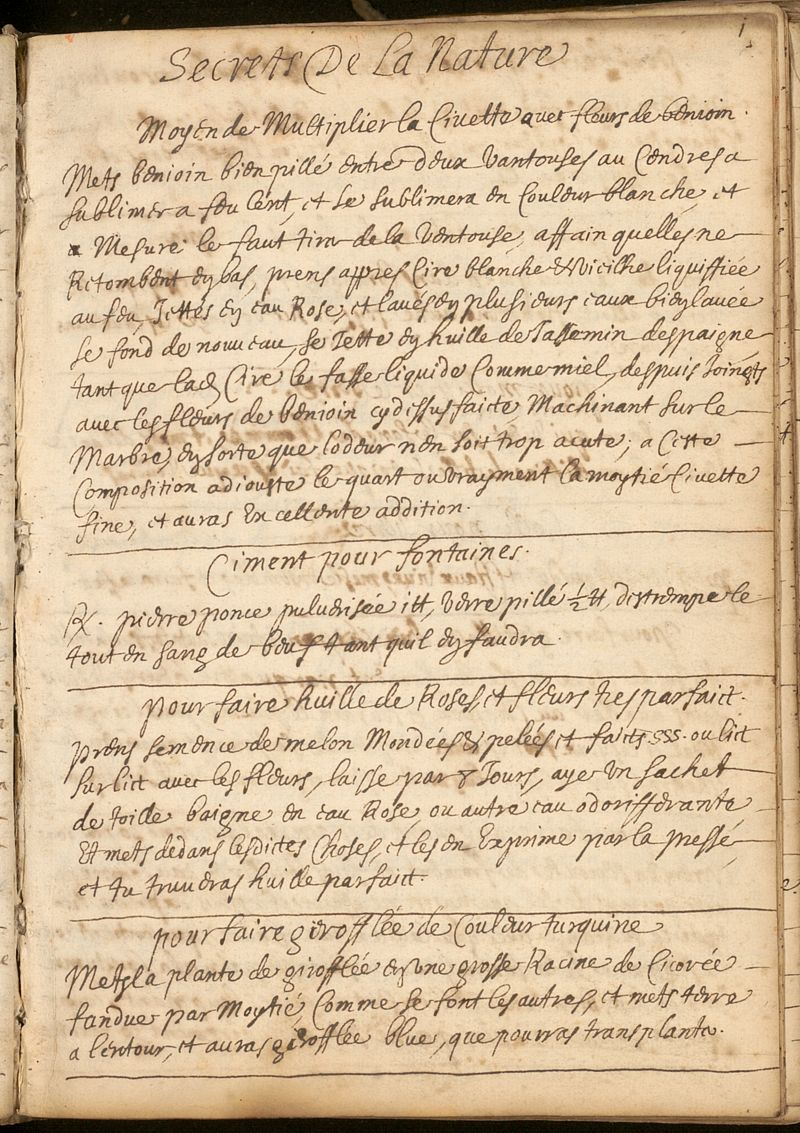 1
Secrets De La Nature
Moyen de Multiplier la Civette avec fleurs de benioin.
Mets benioin bien pillé entre deux vantouses au Cendres a
sublimer a feu lent, et se sublimera en Couleur blanche, et
a Mesure le faut tirer de la ventouse, affain quelles ne
Retombent en bas, prens appres Cire blanche & vieilhe liquiffiée
au feu, Jettés en eau Rose, et lavés en plusieurs eaux bien lavée
se fond de nouveau, se Jette en huille de Jassemin despaigne
tant que lad Cire se fasse liquide Comme miel, despuis Joincts
avec les fleurs de benioin cy dessus faicte, Machinant sur le
Marbre, en sorte que lodeur n'en soit trop acute; a Cette
Composition adiouste le quart ou vrayment la moytié Civette
fine, et auras Excellente addition.
Ciment pour fontaines.
℞. pierre ponce pulverisée i ℔, verre pillé ½ ℔, destrempe le
tout en sang de beuf tant quil en faudra.
pour faire huille de Roses, et fleurs tres parfaict.
prens semence de melon Mondées & pelées et faicts SSS. ou lict
sur lict avec les fleurs, laisse par 8 Jours, aye Un sachet
de toille baigne en eau Rose, ou autre eau odorifferante,
Et mets dedans lesdictes Choses, et les en Exprime par la presse,
et tu truveras huille parfaict.
pour faire girofflée de Couleur turquine
Mets la plante de girofflée en une grosse Racine de Cicorée
fandue par Moytié, Comme se font les autres, et mets terre
a lentour, et auras girofflée blue, que pourras transplanter.